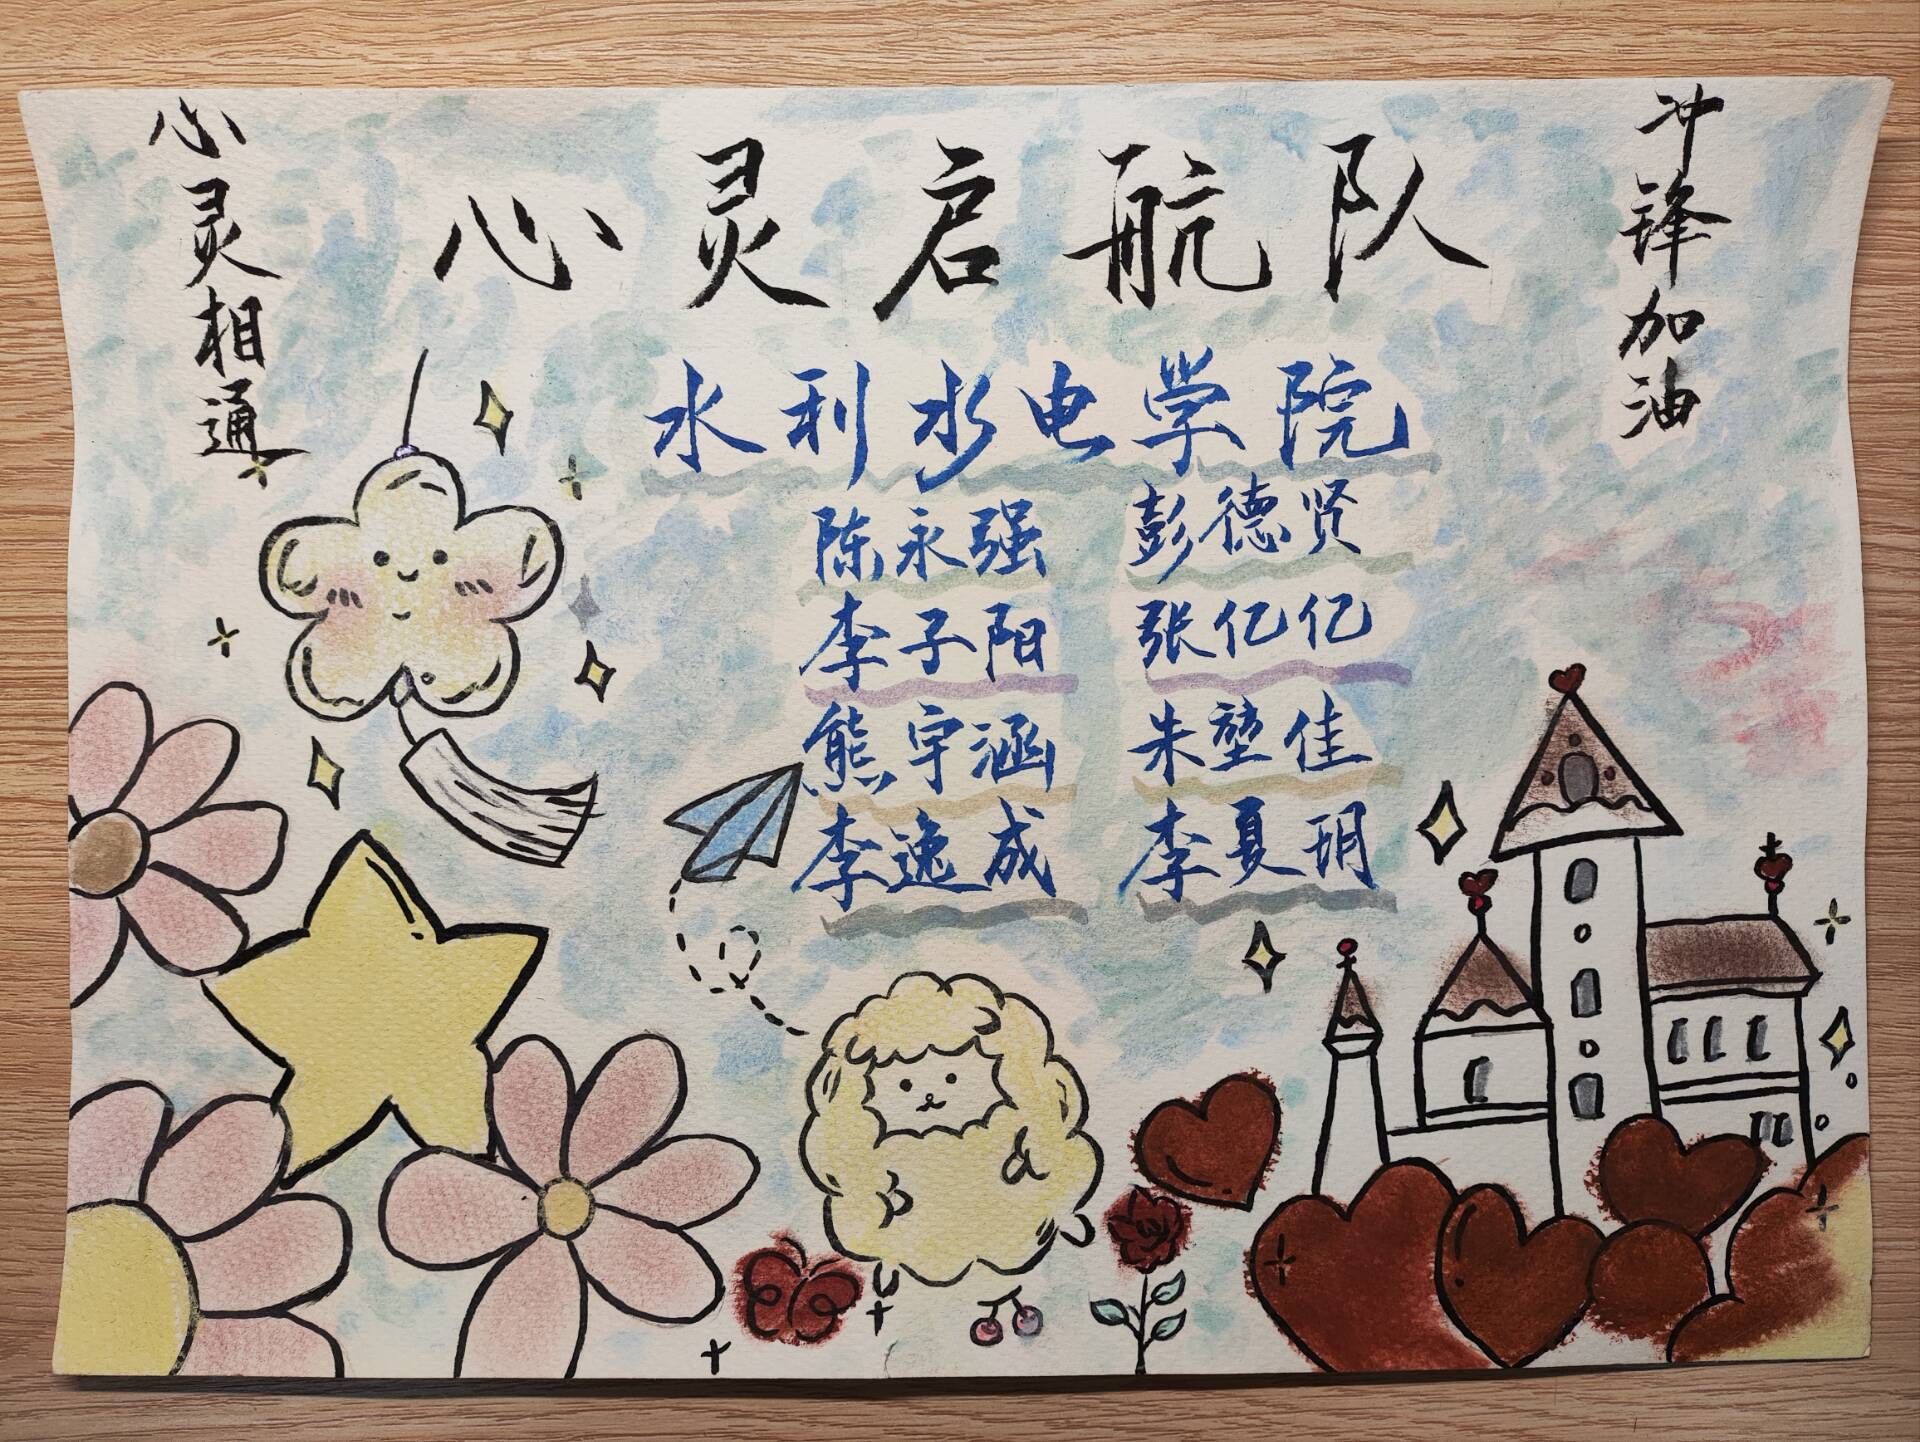 心灵相通
心灵启航队
冲锋加油
水利水电学院
陈永强 彭德贤
李子阳 张亿亿
熊宇涵 朱堃佳
李逸成 李夏玥